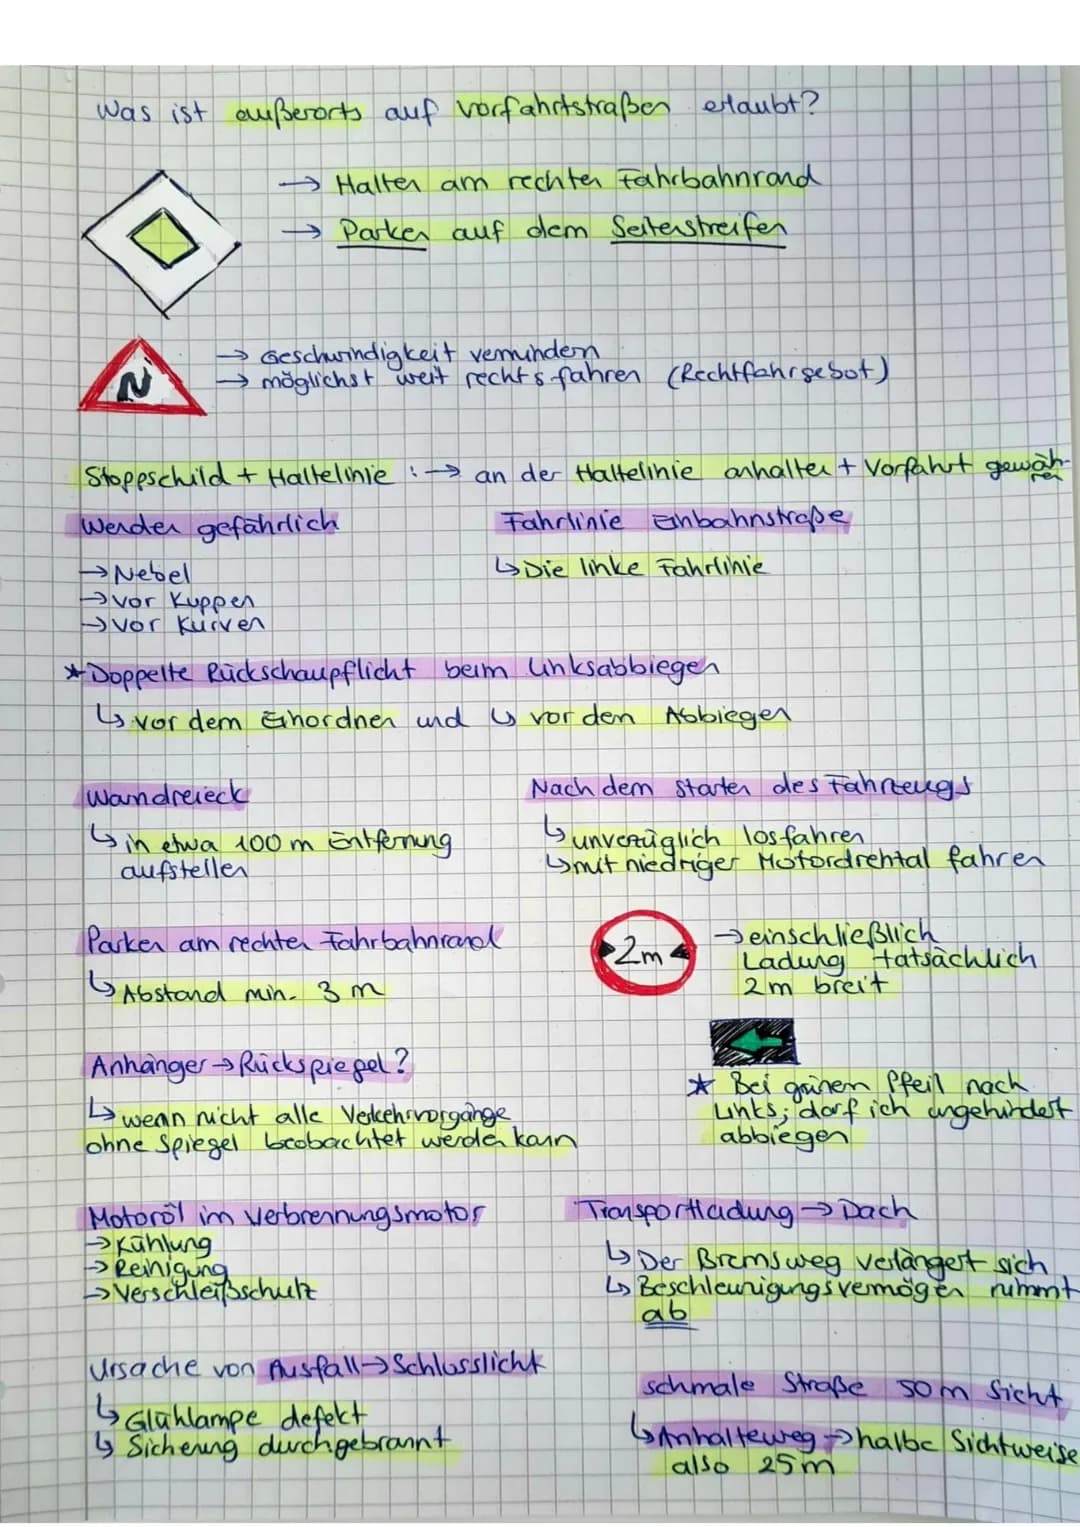 Was ist außerorts auf Vorfahrtstraßen erlaubt?
→ Halten am rechten Fahrbahnrand
→ Parken auf dem Seitenstreifen
→ Geschwindigkeit vermindern
→ möglichst weit rechts fahren (Rechtfahrgebot)
Stoppschild + Haltelinie : → an der Haltelinie anhalten + Vorfahrt gewäh-
ren
Werden gefährlich
→ Nebel
→ vor Kuppen
→ vor Kurven
Fahrlinie Einbahnstraße
↳ Die linke Fahrlinie
* Doppelte Rückschaupflicht beim Linksabbiegen
↳ vor dem Einordnen und ↳ vor den Abbiegen
Warndreieck
↳ in etwa 100 m Entfernung
aufstellen
Nach dem starten des Fahrzeugs
↳ unverzüglich losfahren
↳ mit niedriger Motordrehtal fahren
Parken am rechten Fahrbahnrand
↳ Abstand min. 3 m
2m
→ einschließlich
Ladung tatsächlich
2m breit
Anhänger → Rückspiegel?
↳ wenn nicht alle Verkehrvorgänge
ohne Spiegel beobachtet werden kann
* Bei grünem Pfeil nach
Links; darf ich ungehindert
abbiegen
Motoröl im Verbrennungsmotor
→ Kühlung
→ Reinigung
→ Verschleißschutz
Transportladung → Dach
↳ Der Bremsweg verlängert sich
↳ Beschleunigungsvermögen nimmt
ab
Ursache von Ausfall → Schlusslicht
↳ Glühlampe defekt
↳ Sicherung durchgebrannt
schmale Straße 50m Sicht
↳ Anhalteweg → halbe Sichtweise
also 25m